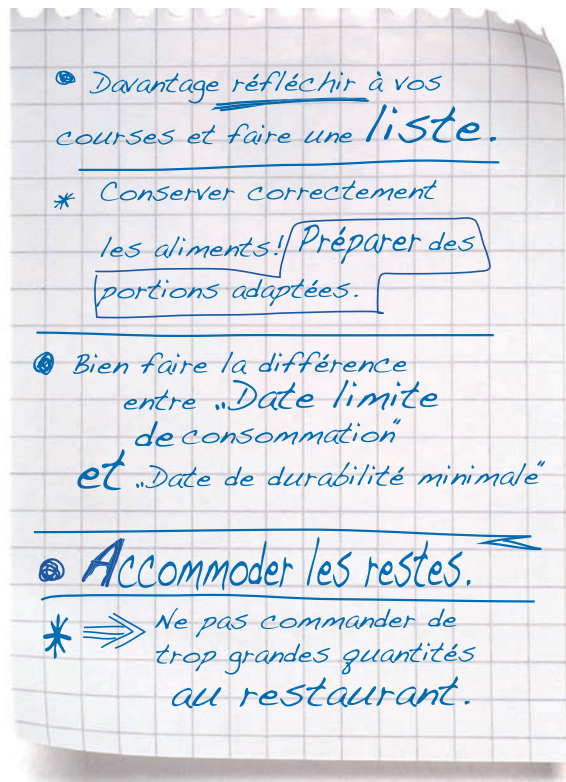 Davantage réfléchir à vos
courses et faire une liste.
* Conserver correctement
les aliments! Préparer des
portions adaptées.
Bien faire la différence
entre „Date limite
de consommation"
et „Date de durabilité minimale"
Accommoder les restes.
* ⇒ Ne pas commander de
trop grandes quantités
au restaurant.